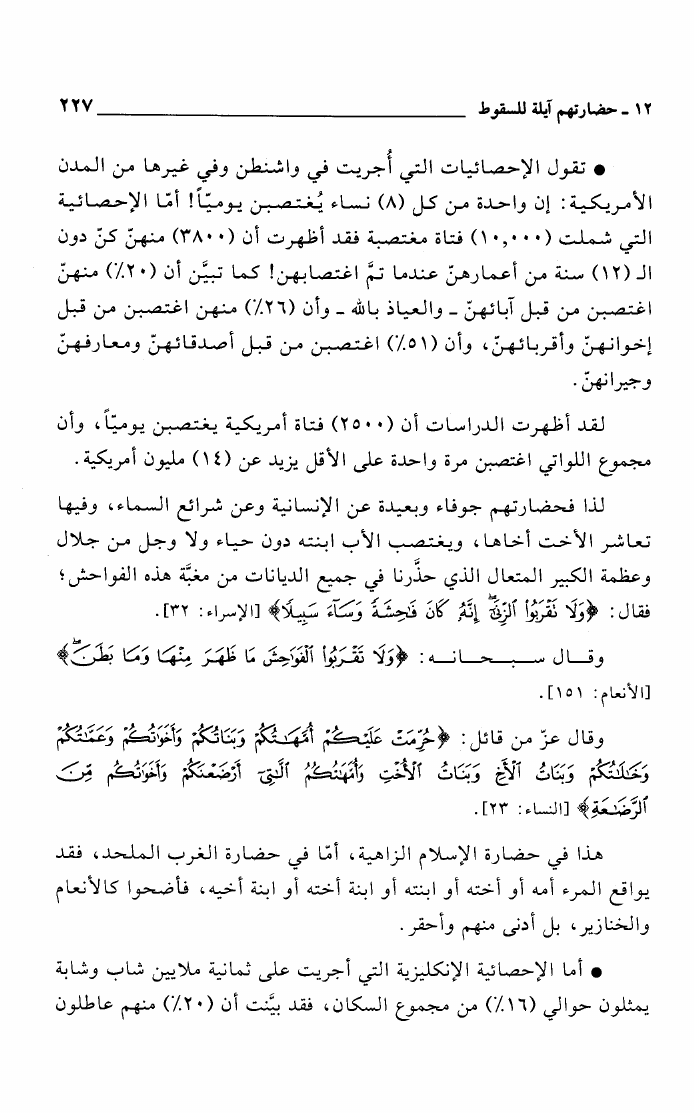 ١٢ ـ حضارتهم آيلة للسقوط ٢٢٧
● تقول الإحصائيات التي أُجريت في واشنطن وفي غيرها من المدن
الأمريكية: إن واحدة من كل (٨) نساء يُغتصبن يوميّاً! أمّا الإحصائية
التي شملت (١٠,٠٠٠) فتاة مغتصبة فقد أظهرت أن (٣٨٠٠) منهنّ كنّ دون
الـ (١٢) سنة من أعمارهنّ عندما تمَّ اغتصابهن! كما تبيَّن أن (٢٠٪) منهنّ
اغتصبن من قبل آبائهنّ ـ والعياذ بالله ـ وأن (٢٦٪) منهن اغتصبن من قبل
إخوانهنّ وأقربائهنّ، وأن (٥١٪) اغتصبن من قبل أصدقائهنّ ومعارفهنّ
وجيرانهنّ.
لقد أظهرت الدراسات أن (٢٥٠٠) فتاة أمريكية يغتصبن يوميّاً، وأن
مجموع اللواتي اغتصبن مرة واحدة على الأقل يزيد عن (١٤) مليون أمريكية.
لذا فحضارتهم جوفاء وبعيدة عن الإنسانية وعن شرائع السماء، وفيها
تعاشر الأخت أخاها، ويغتصب الأب ابنته دون حياء ولا وجل من جلال
وعظمة الكبير المتعال الذي حذَّرنا في جميع الديانات من مغبَّة هذه الفواحش؛
فقال: ﴿وَلَا نَقْرَبُوا۟ ٱلزِّنَىٰٓ ۖ إِنَّهُۥ كَانَ فَـٰحِشَةً وَسَآءَ سَبِيلًا﴾ [الإسراء: ٣٢].
وقـال سـبـحـانـه: ﴿وَلَا تَقْرَبُوا۟ ٱلْفَوَٰحِشَ مَا ظَهَرَ مِنْهَا وَمَا بَطَنَ ۖ﴾
[الأنعام: ١٥١].
وقال عزّ من قائل: ﴿حُرِّمَتْ عَلَيْكُمْ أُمَّهَـٰتُكُمْ وَبَنَاتُكُمْ وَأَخَوَٰتُكُمْ وَعَمَّـٰتُكُمْ
وَخَـٰلَـٰتُكُمْ وَبَنَاتُ ٱلْأَخِ وَبَنَاتُ ٱلْأُخْتِ وَأُمَّهَـٰتُكُمُ ٱلَّـٰتِىٓ أَرْضَعْنَكُمْ وَأَخَوَٰتُكُم مِّنَ
ٱلرَّضَـٰعَةِ﴾ [النساء: ٢٣].
هذا في حضارة الإسلام الزاهية، أمّا في حضارة الغرب الملحد، فقد
يواقع المرء أمه أو أخته أو ابنته أو ابنة أخته أو ابنة أخيه، فأضحوا كالأنعام
والخنازير، بل أدنى منهم وأحقر.
● أما الإحصائية الإنكليزية التي أجريت على ثمانية ملايين شاب وشابة
يمثلون حوالي (١٦٪) من مجموع السكان، فقد بيَّنت أن (٢٠٪) منهم عاطلون